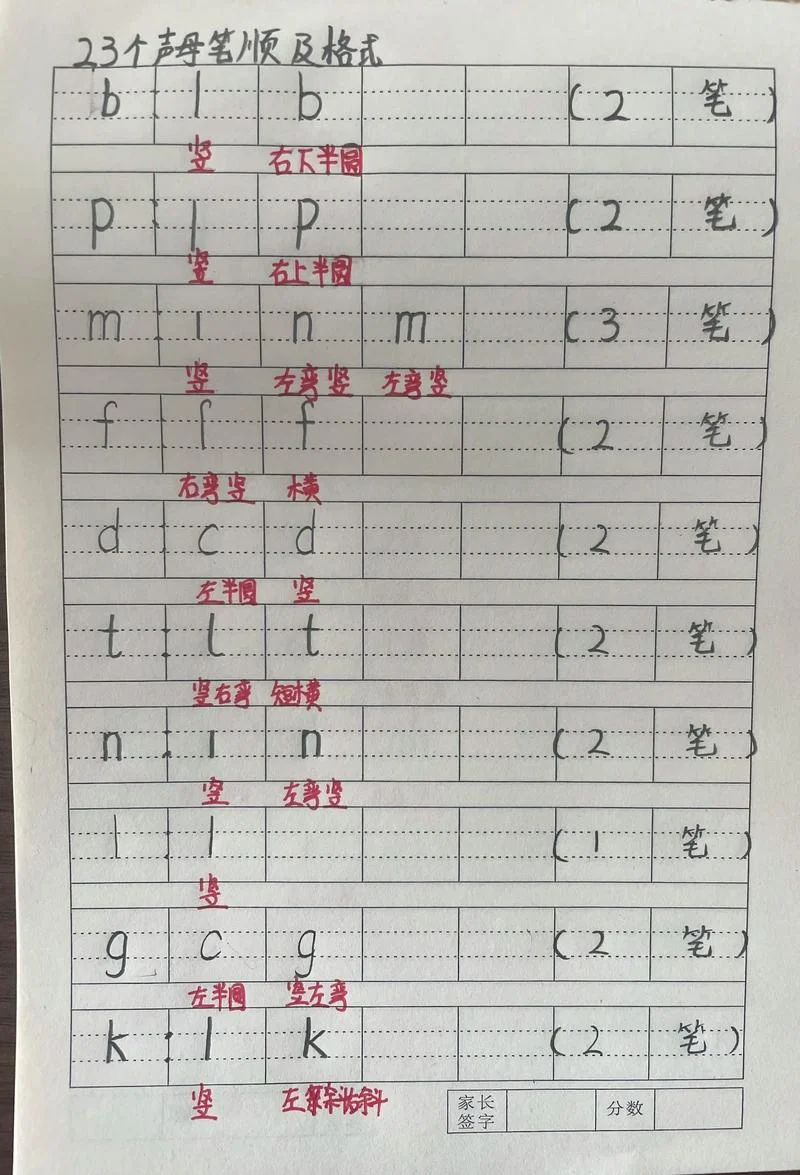 23个声母笔顺及格式
b : l b ( 2 笔 )
竖 右下半圆
p : l p ( 2 笔 )
竖 右上半圆
m : ı n m ( 3 笔 )
竖 左弯竖 左弯竖
f : ſ f ( 2 笔 )
右弯竖 横
d : c d ( 2 笔 )
左半圆 竖
t : l t ( 2 笔 )
竖右弯 短横
n : ı n ( 2 笔 )
竖 左弯竖
l : l ( 1 笔 )
竖
g : c g ( 2 笔 )
左半圆 竖左弯
k : l k ( 2 笔 )
竖 左斜右斜
家长签字 分数